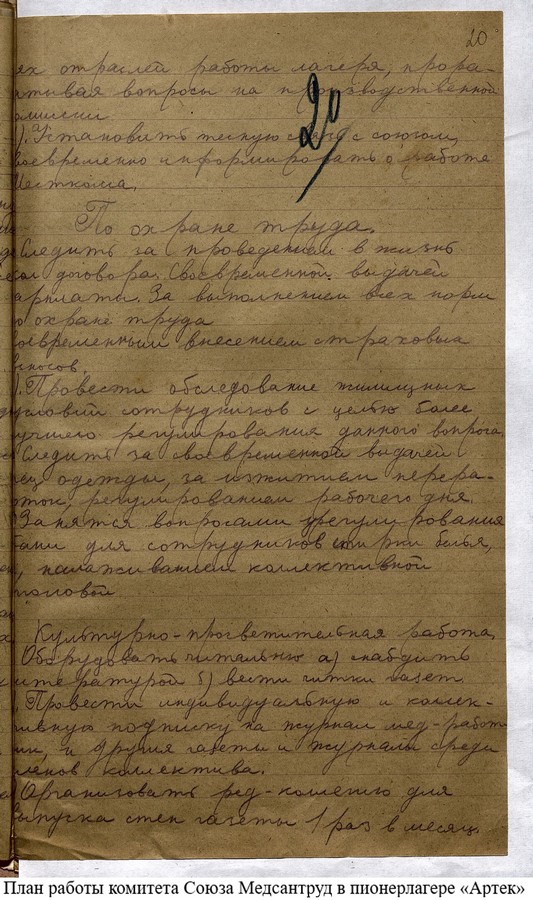 20
20
ях отраслей работы лагеря, прора-
тывая вопросы на производственной
омиссии.
). Установить тесную связь с союзом,
воевременно информировать о работе
Месткома.
По охране труда.
Следить за проведением в жизнь
договора. Своевременной выдачей
арплаты. За выполнением всех норм
о охране труда
воевременным внесением страховых
зносов.
). Провести обследование жилищных
условий сотрудников с целью более
учшего регулирования данного вопроса.
Следить за своевременной выдачей
пец одежды, за изжитием перера-
оток, регулированием рабочего дня.
Занятся вопросами урегулирования
бани для сотрудников стирки белья,
налаживанием коллективной
толовой
Культурно-просветительная работа.
Оборудовать читальню а) снабдить
литературой б) вести читки газет.
Провести индивидуальную и коллек-
тивную подписку на журнал мед-работ
ник, и другие газеты и журналы среди
членов коллектива.
Организовать ред-коллегию для
выпуска стен газеты 1 раз в месяц.
План работы комитета Союза Медсантруд в пионерлагере «Артек»